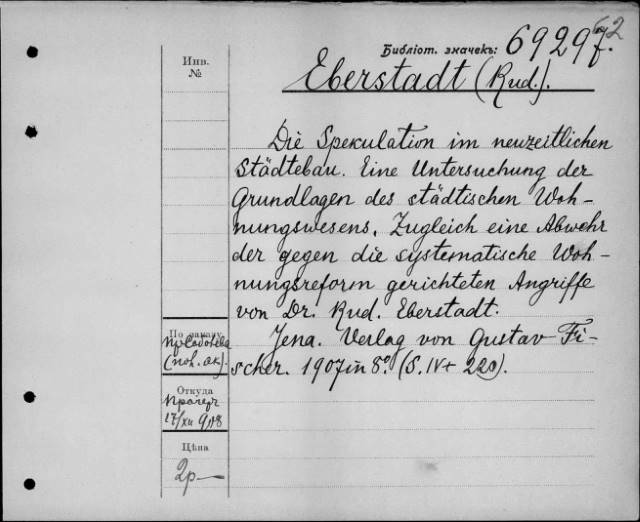 62
Библіот. значекъ: 69297.
Инв.
№
Eberstadt (Rud.).
Die Spekulation im neuzeitlichen
Städtebau. Eine Untersuchung der
Grundlagen des städtischen Woh-
nungswesens, Zugleich eine Abwehr
der gegen die systematische Woh-
nungsreform gerichteten Angriffe
von Dr. Rud. Eberstadt.
Jena. Verlag von Gustav Fi-
scher. 1907 in 8°. (S. IV + 220).
По заказу
(пок. ак.).
Откуда
17/XII 918
Цѣна
2р—